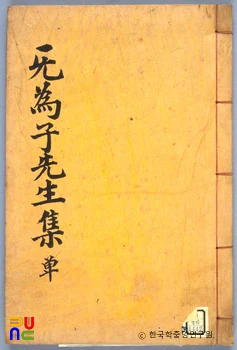 无為子先生集 单
ⓒ 한국학중앙연구원